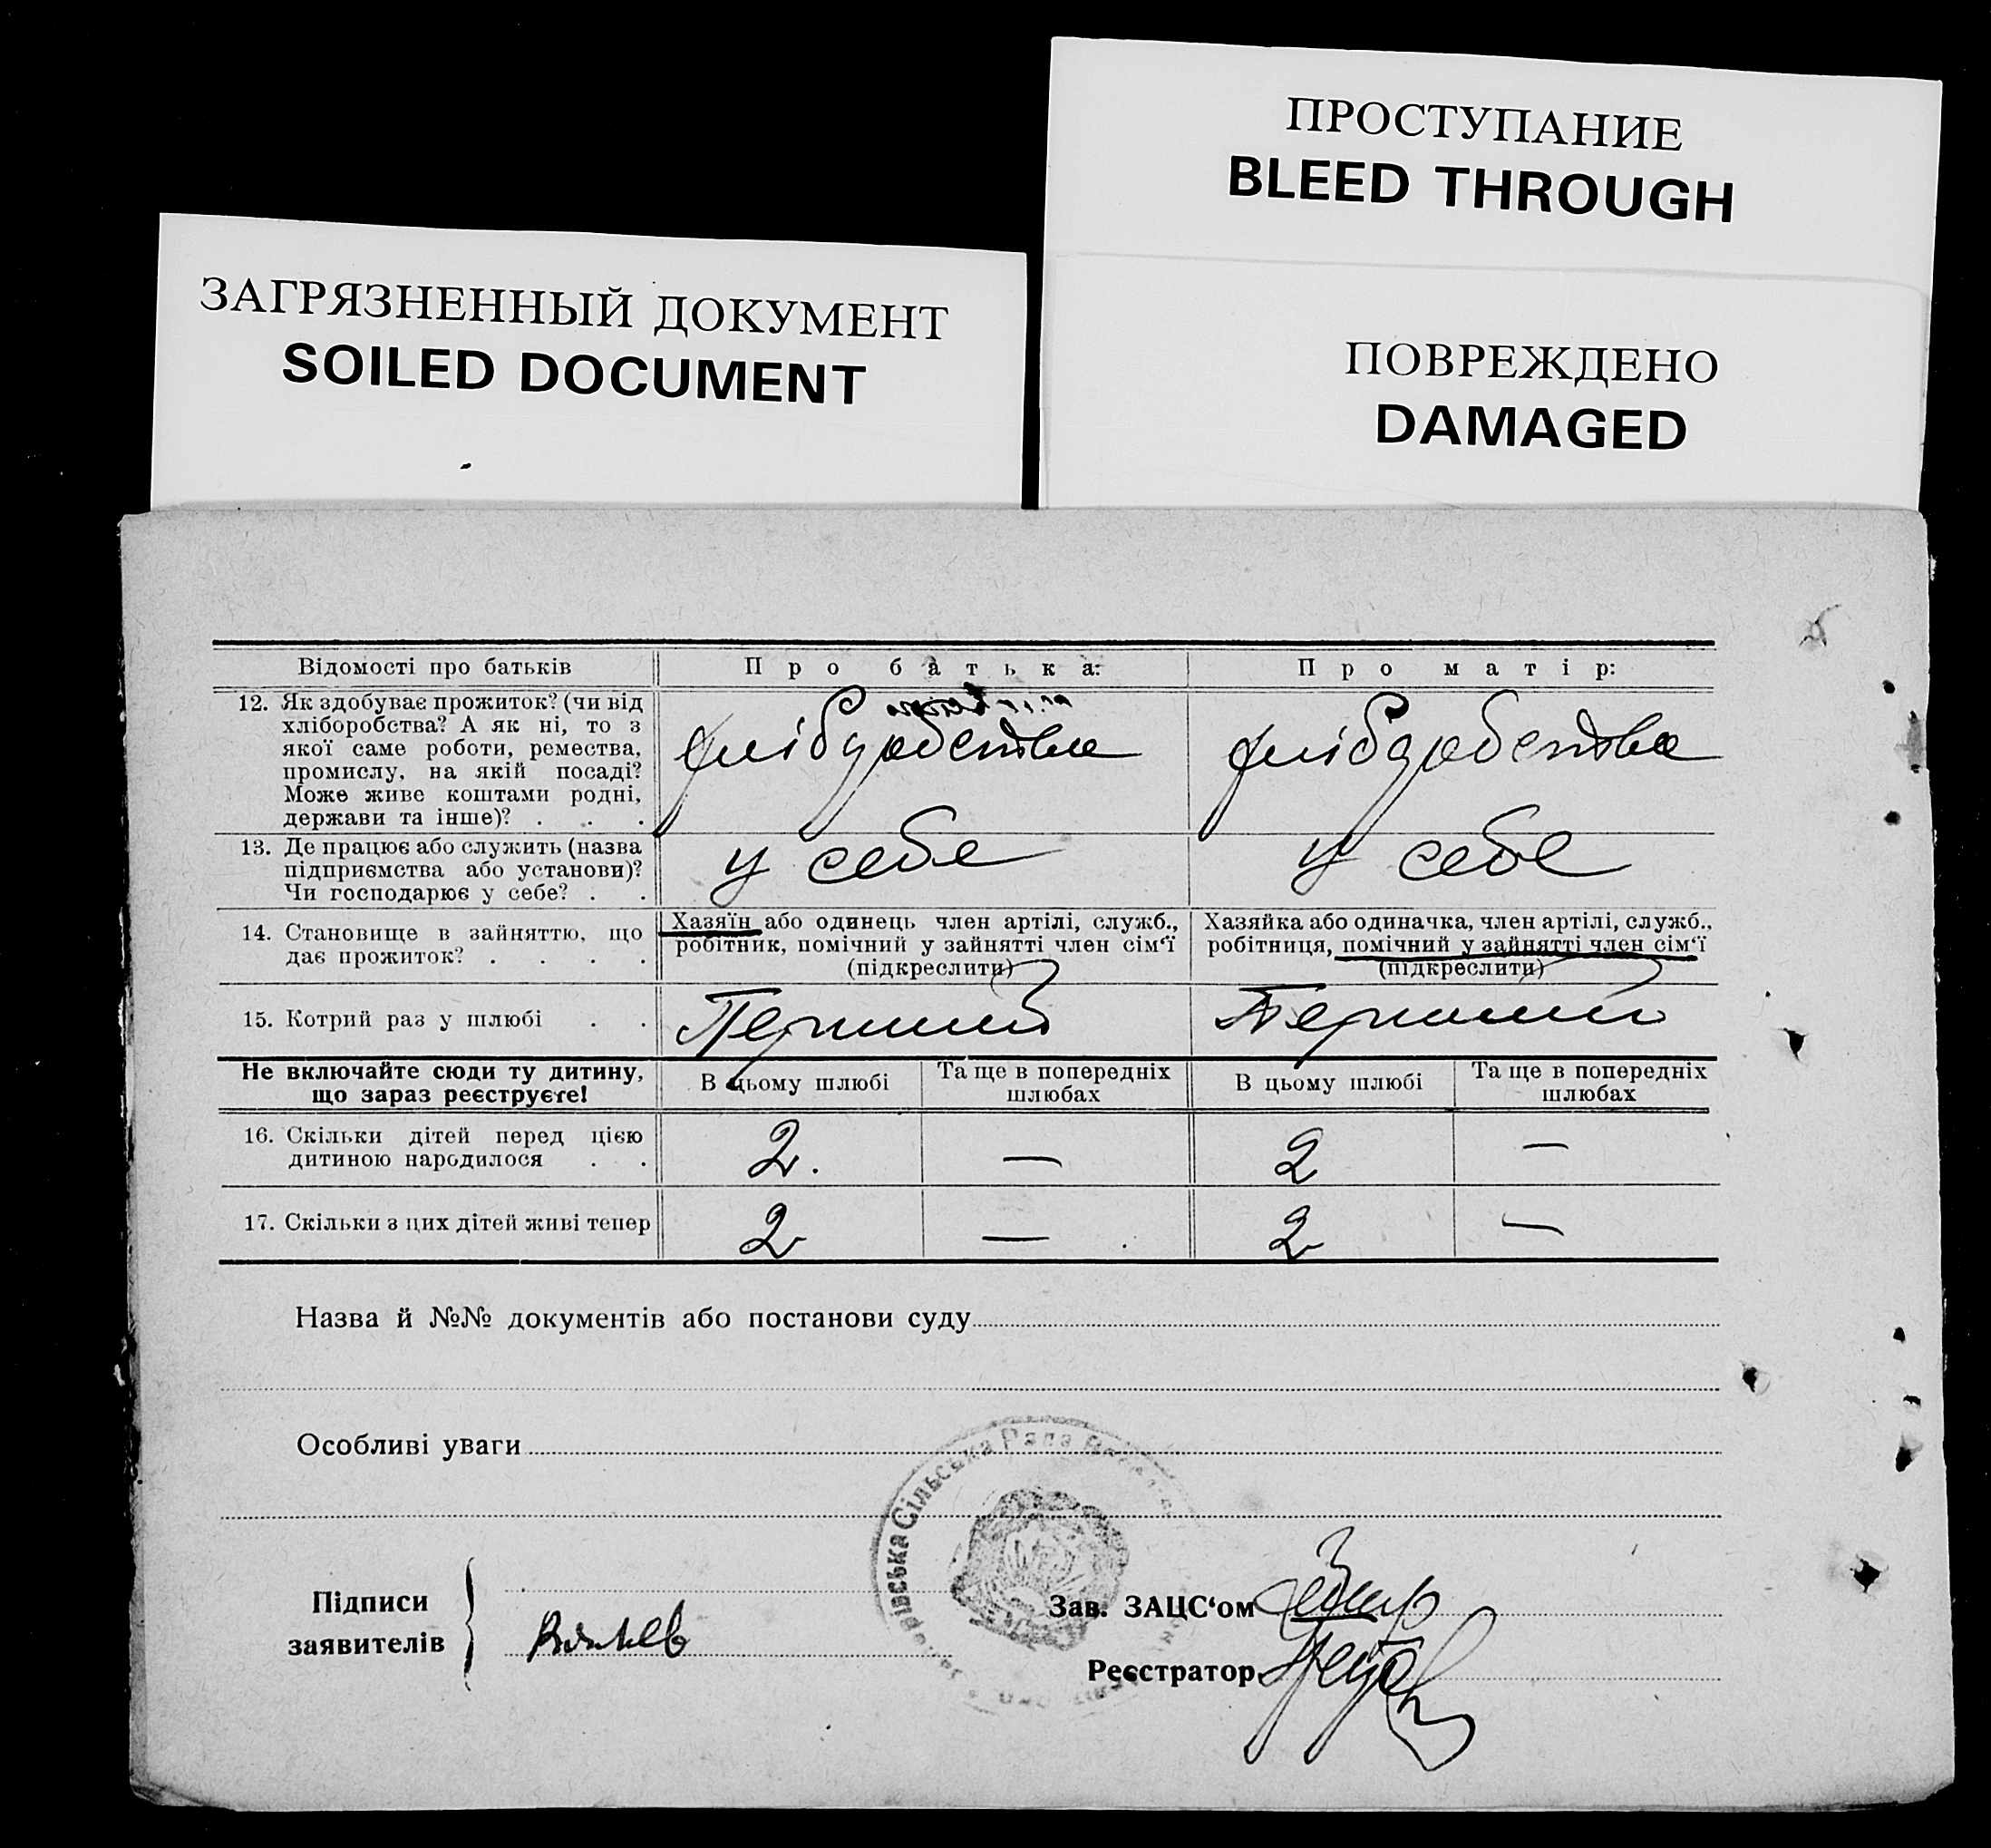 ПРОСТУПАНИЕ
BLEED THROUGH
ЗАГРЯЗНЕННЫЙ ДОКУМЕНТ
SOILED DOCUMENT
ПОВРЕЖДЕНО
DAMAGED
Відомості про батьків
Про батька:
Про матір:
12. Як здобуває прожиток? (чи від
хліборобства? А як ні, то з
якої саме роботи, ремества,
промислу, на якій посаді?
Може живе коштами родні,
держави та інше)? . . .
хліборобство
хліборобство
13. Де працює або служить (назва
підприємства або установи)?
Чи господарює у себе? . .
у себе
у себе
14. Становище в зайняттю, що
дає прожиток? . . . .
Хазяїн або одинець член артілі, служб.,
робітник, помічний у зайнятті член сім‘ї
(підкреслити)
Хазяйка або одиначка, член артілі, служб.,
робітниця, помічний у зайнятті член сім‘ї
(підкреслити)
15. Котрий раз у шлюбі . .
Перший
Перший
Не включайте сюди ту дитину,
що зараз реєструєте!
В цьому шлюбі
Та ще в попередніх
шлюбах
В цьому шлюбі
Та ще в попередніх
шлюбах
16. Скільки дітей перед цією
дитиною народилося . .
2.
—
2
—
17. Скільки з цих дітей живі тепер
2
—
2
—
Назва й №№ документів або постанови суду
Особливі уваги
Сільська Рада
Підписи
заявителів
Зав. ЗАЦС‘ом
Реєстратор